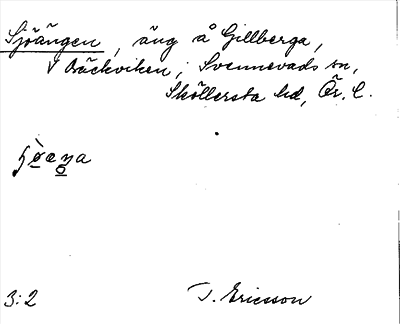 Sjöängen, äng å Gillberga,
V Bäckviken, Svennevads sn,
Sköllersta hd, Ör. l.
3:2 J. Ericsson